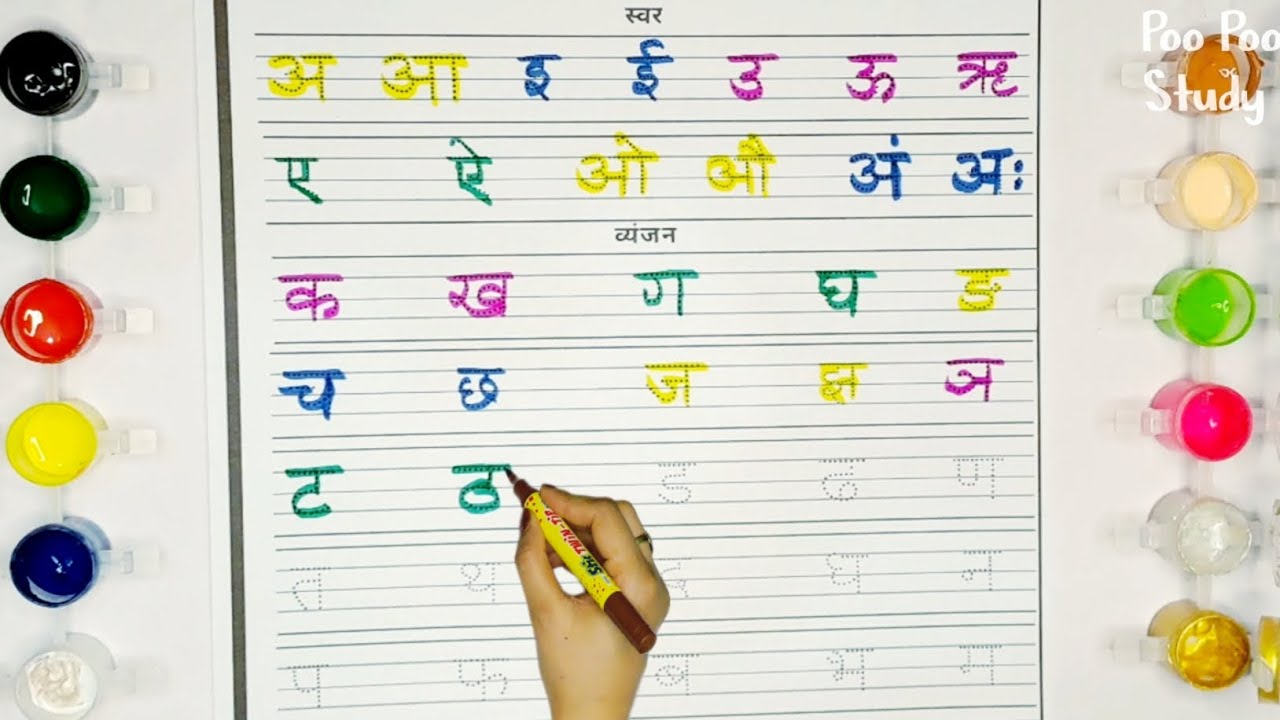 Poo Poo
Study
स्वर
अ आ इ ई उ ऊ ऋ
ए ऐ ओ औ अं अः
व्यंजन
क ख ग घ ङ
च छ ज झ ञ
ट ठ ड ढ ण
त थ द ध न
प फ ब भ म
TWIN-TIP